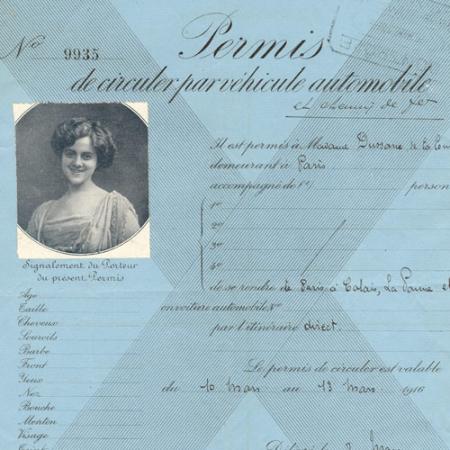 Nº 9935
Permis
de circuler par véhicule automobile
et chemin de fer
Il est permis à Madame Dussane de la
demeurant à Paris
accompagné de (1) person
1º
2º
3º
4º
de se rendre de Paris à Calais, La Panne et
en voiture automobile Nº
par l'itinéraire direct.
Le permis de circuler est valable
du 10 Mars au 13 Mars 1916
Signalement du Porteur
du présent Permis
Age
Taille
Cheveux
Sourcils
Barbe
Front
Yeux
Nez
Bouche
Menton
Visage